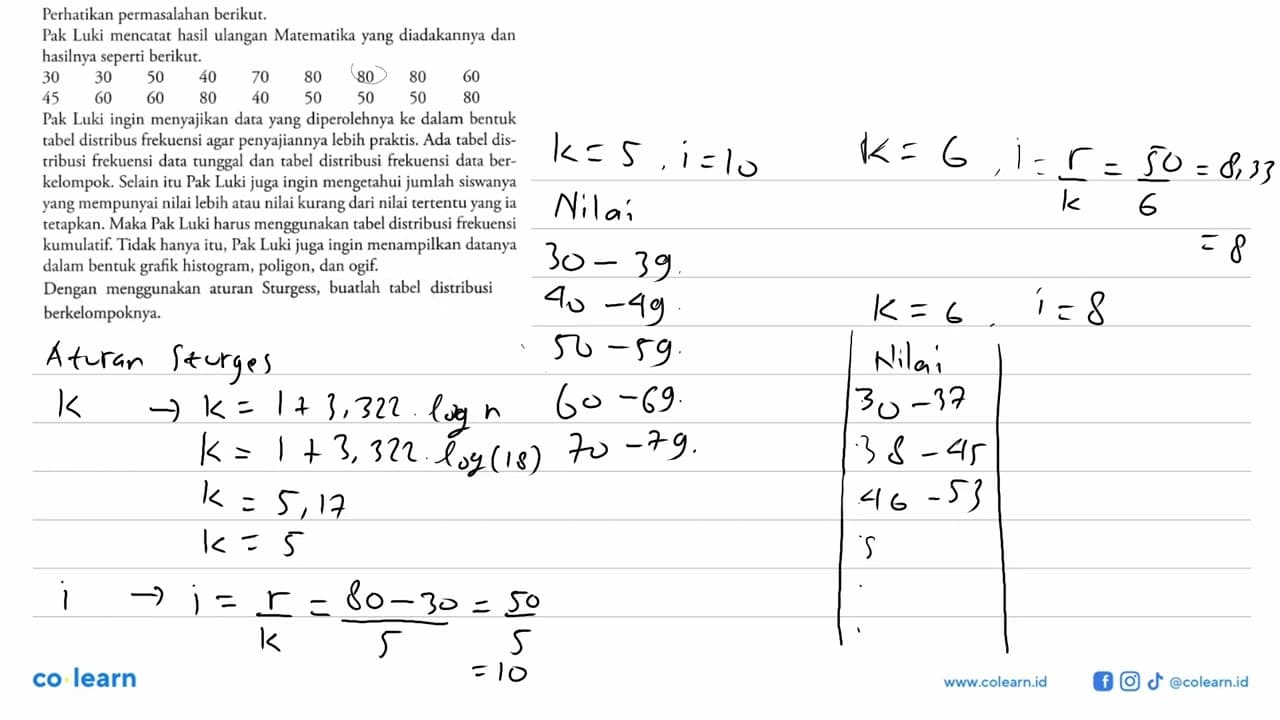 Perhatikan permasalahan berikut.
Pak Luki mencatat hasil ulangan Matematika yang diadakannya dan
hasilnya seperti berikut.
30 30 50 40 70 80 80 80 60
45 60 60 80 40 50 50 50 80
Pak Luki ingin menyajikan data yang diperolehnya ke dalam bentuk
tabel distribus frekuensi agar penyajiannya lebih praktis. Ada tabel dis-
tribusi frekuensi data tunggal dan tabel distribusi frekuensi data ber-
kelompok. Selain itu Pak Luki juga ingin mengetahui jumlah siswanya
yang mempunyai nilai lebih atau nilai kurang dari nilai tertentu yang ia
tetapkan. Maka Pak Luki harus menggunakan tabel distribusi frekuensi
kumulatif. Tidak hanya itu, Pak Luki juga ingin menampilkan datanya
dalam bentuk grafik histogram, poligon, dan ogif.
Dengan menggunakan aturan Sturgess, buatlah tabel distribusi
berkelompoknya.
Aturan Sturges
k → k = 1 + 3,322 . log n
k = 1 + 3,322 . log (18)
k = 5,17
k = 5
i → i = r/k = 80-30/5 = 50/5
= 10
k = 5 , i = 10
Nilai
30 - 39.
40 - 49.
50 - 59.
60 - 69.
70 - 79.
k = 6 , i = r/k = 50/6 = 8,33
= 8
k = 6 , i = 8
Nilai
30 - 37
38 - 45
46 - 53
5
.
.
co learn
www.colearn.id
@colearn.id